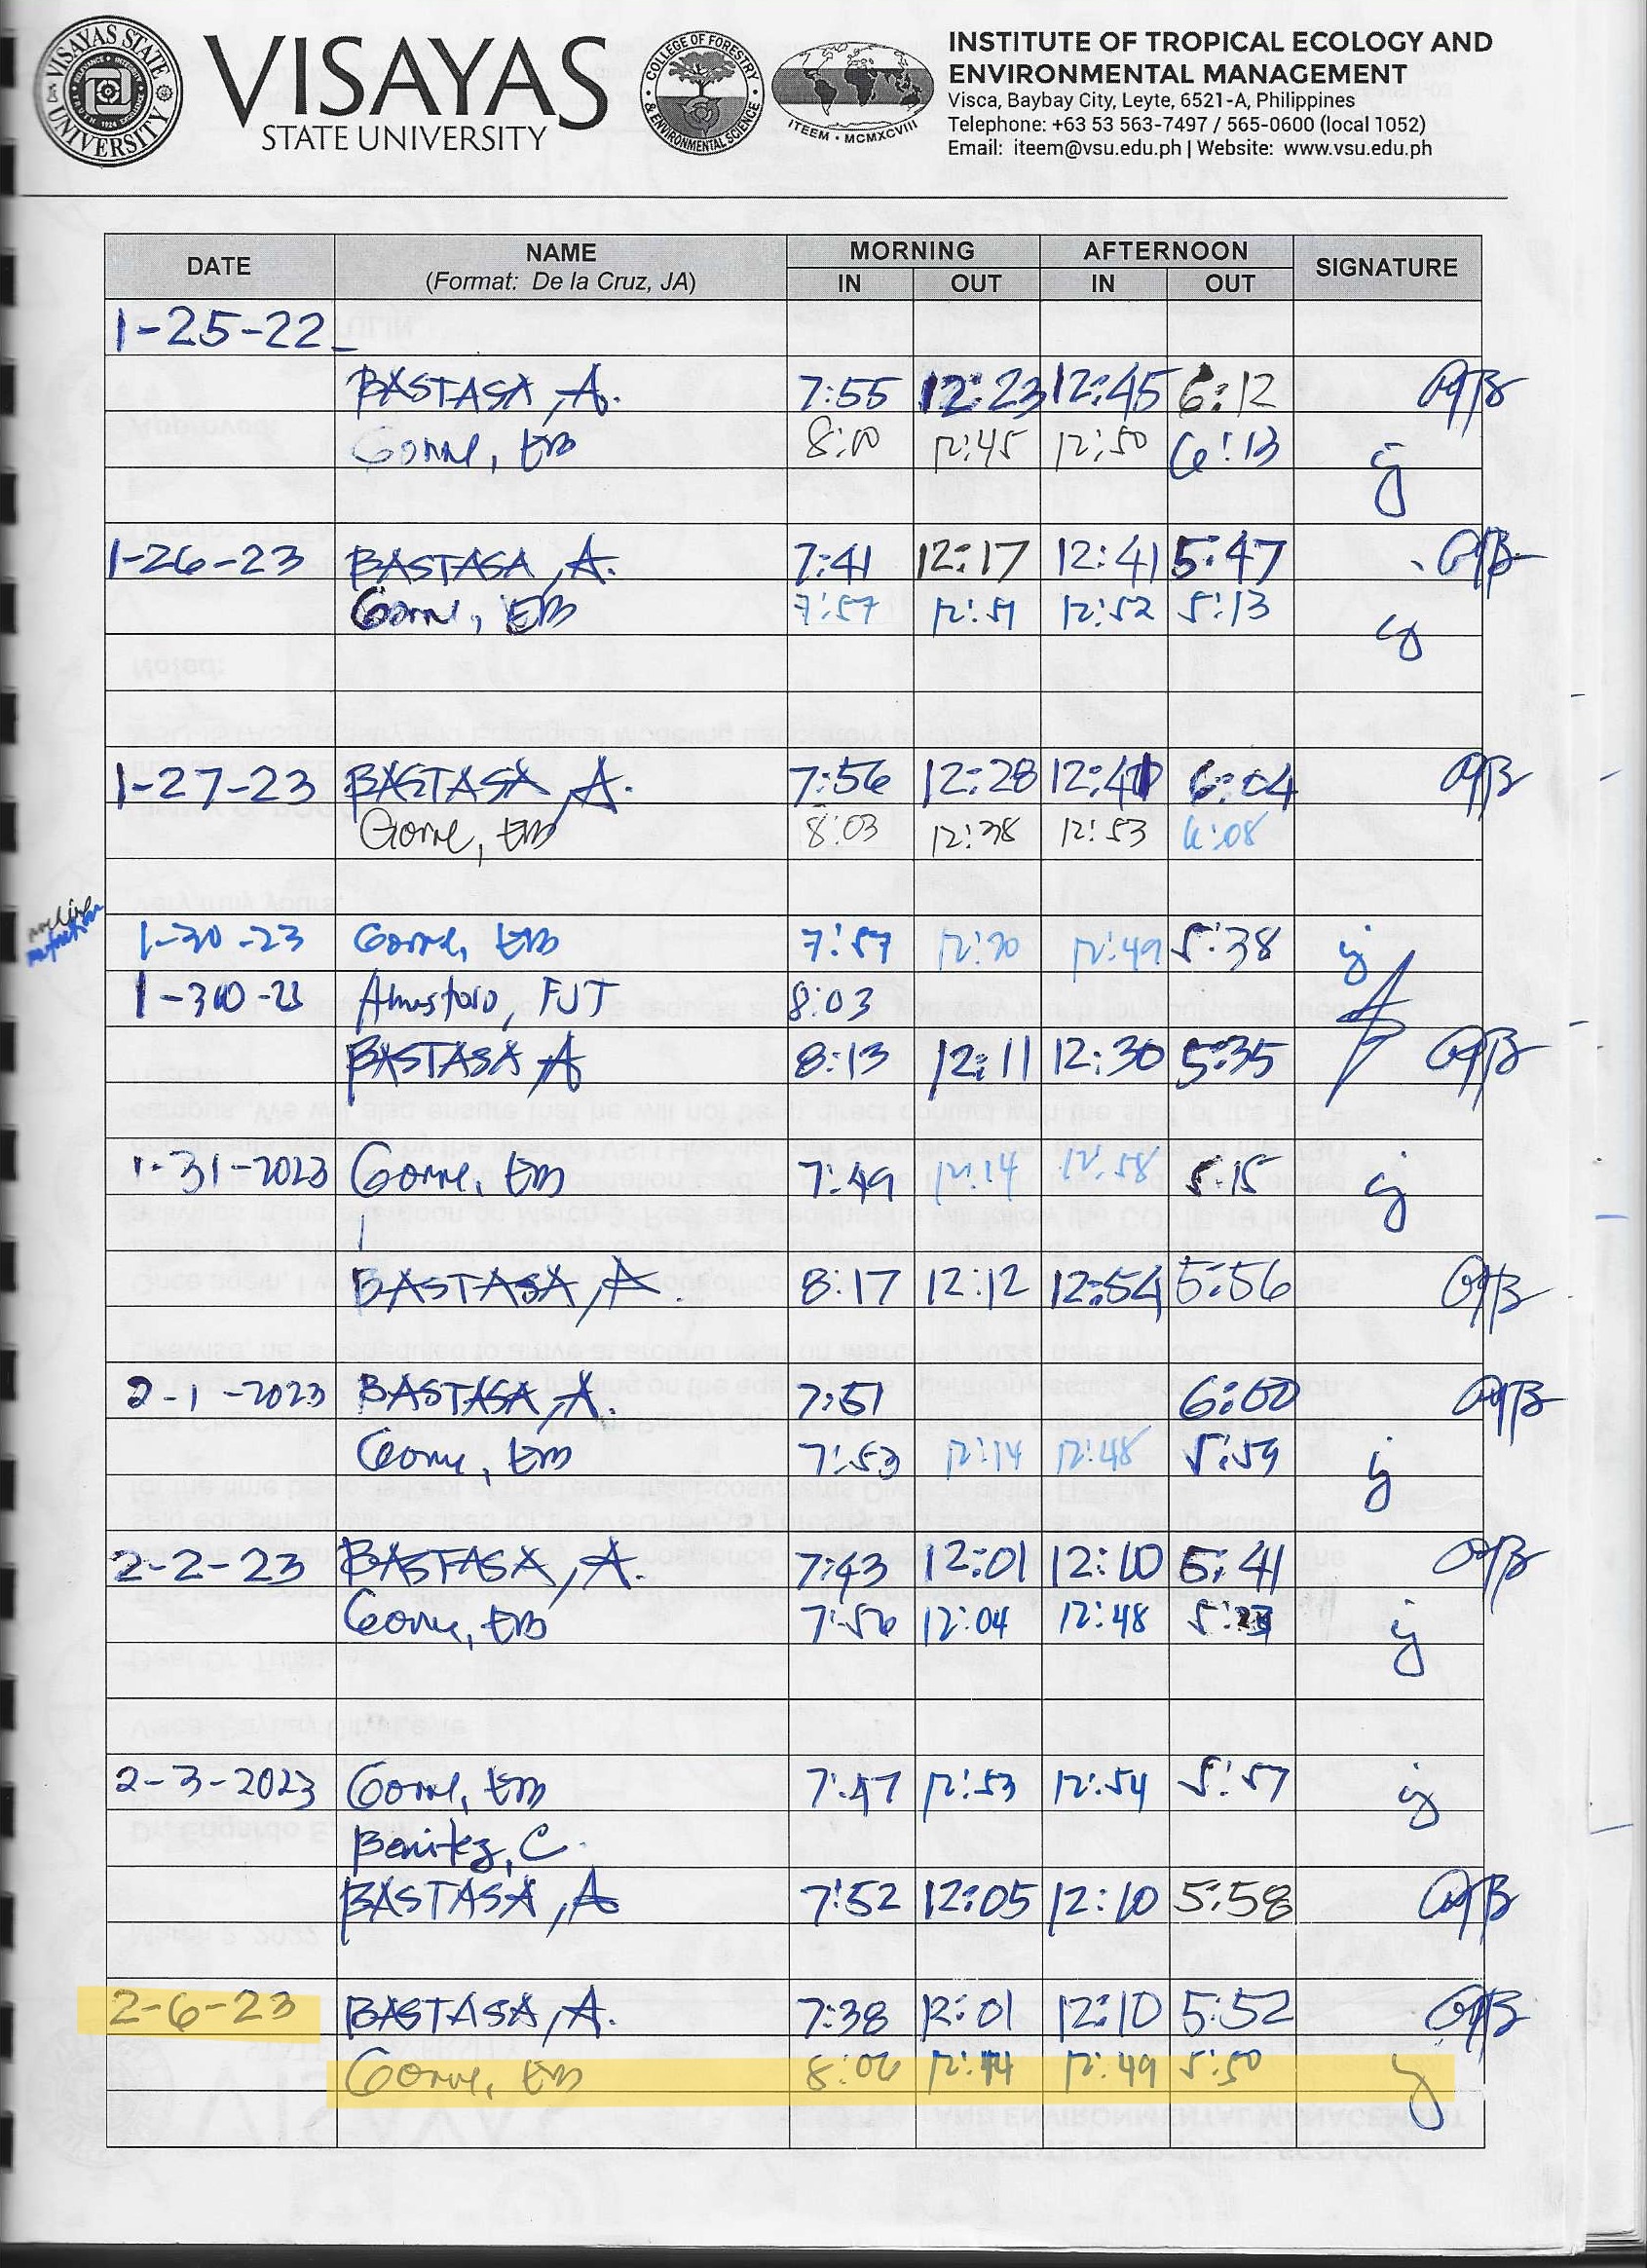 VISAYAS STATE UNIVERSITY
VISAYAS
STATE UNIVERSITY
COLLEGE OF FORESTRY & ENVIRONMENTAL SCIENCE
ITEEM • MCMXCVIII
INSTITUTE OF TROPICAL ECOLOGY AND
ENVIRONMENTAL MANAGEMENT
Visca, Baybay City, Leyte, 6521-A, Philippines
Telephone: +63 53 563-7497 / 565-0600 (local 1052)
Email: iteem@vsu.edu.ph | Website: www.vsu.edu.ph
DATE NAME MORNING AFTERNOON SIGNATURE
(Format: De la Cruz, JA) IN OUT IN OUT
1-25-22
BASTASA, A. 7:55 12:23 12:45 6:12
Gorne, EB 8:00 12:45 12:50 6:13
1-26-23 BASTASA, A. 7:41 12:17 12:41 5:47
Gorne, EB 7:57 12:51 12:52 5:13
1-27-23 BASTASA, A. 7:56 12:28 6:04
Gorne, EB 8:03 12:38 12:53 6:08
1-30-23 Gorne, EB 7:57 12:20 12:49 5:38
1-30-23 FJT 8:03
BASTASA A 8:13 12:11 12:30 5:35
1-31-2023 Gorne, EB 7:49 12:14 12:58 5:15
BASTASA, A. 8:17 12:12 12:54 5:56
2-1-2023 BASTASA, A. 7:51 6:00
Gorne, EB 7:53 12:14 12:48 5:59
2-2-23 BASTASA, A. 7:43 12:01 12:10 5:41
Gorne, EB 7:56 12:04 12:48
2-3-2023 Gorne, EB 7:47 12:53 12:54 5:57
Benitez, C.
BASTASA, A 7:52 12:05 12:10 5:58
2-6-23 BASTASA, A. 7:38 12:01 12:10 5:52
Gorne, EB 8:06 12:44 12:49 5:50